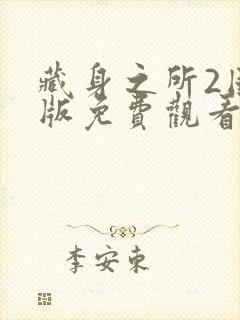 藏身之所2
版免費觀看
李安東